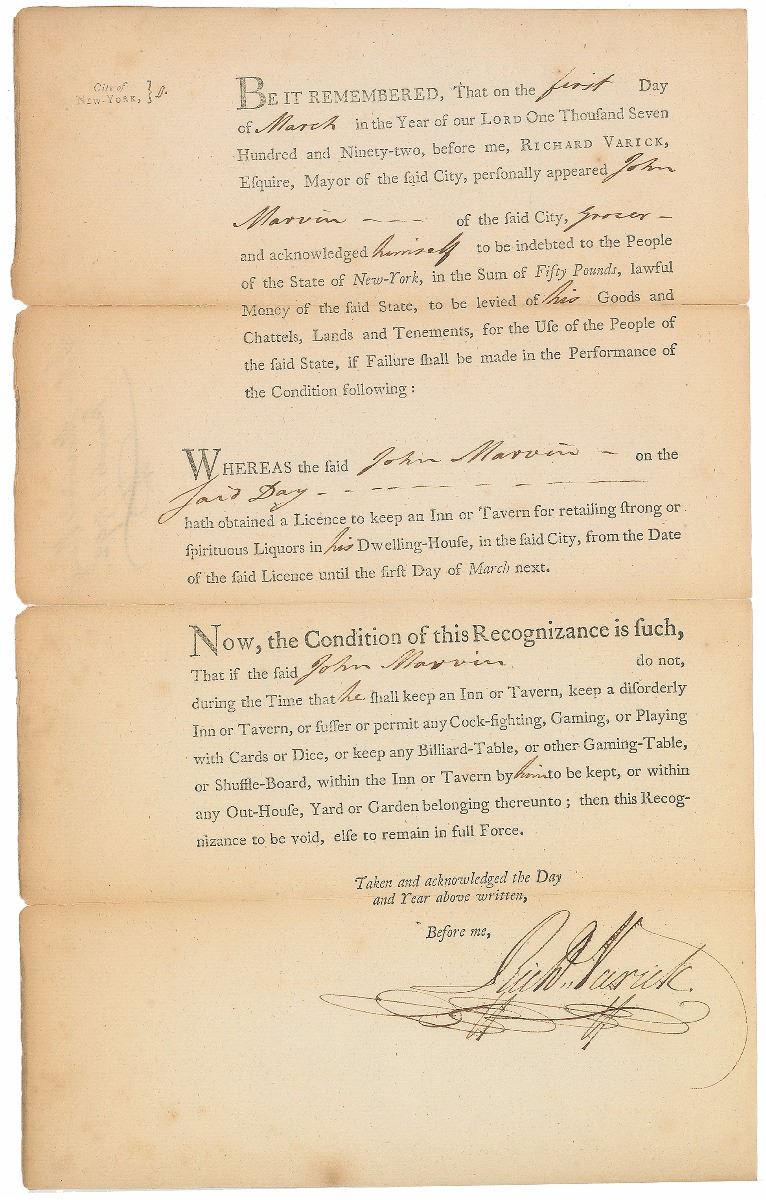 City of
NEW-YORK, } ſs.
BE IT REMEMBERED, That on the first Day
of March in the Year of our LORD One Thouſand Seven
Hundred and Ninety-two, before me, RICHARD VARICK,
Eſquire, Mayor of the ſaid City, perſonally appeared John
Marvin - - - of the ſaid City, Grocer -
and acknowledged himself to be indebted to the People
of the State of New-York, in the Sum of Fifty Pounds, lawful
Money of the ſaid State, to be levied of his Goods and
Chattels, Lands and Tenements, for the Uſe of the People of
the ſaid State, if Failure ſhall be made in the Performance of
the Condition following:
WHEREAS the ſaid John Marvin - on the
said Day - - - - - - - - -
hath obtained a Licence to keep an Inn or Tavern for retailing ſtrong or
ſpirituous Liquors in his Dwelling-Houſe, in the ſaid City, from the Date
of the ſaid Licence until the firſt Day of March next.
Now, the Condition of this Recognizance is ſuch,
That if the ſaid John Marvin do not,
during the Time that he ſhall keep an Inn or Tavern, keep a diſorderly
Inn or Tavern, or ſuffer or permit any Cock-fighting, Gaming, or Playing
with Cards or Dice, or keep any Billiard-Table, or other Gaming-Table,
or Shuffle-Board, within the Inn or Tavern by him to be kept, or within
any Out-Houſe, Yard or Garden belonging thereunto; then this Recog-
nizance to be void, elſe to remain in full Force.
Taken and acknowledged the Day
and Year above written,
Before me,
Richd. Varick.